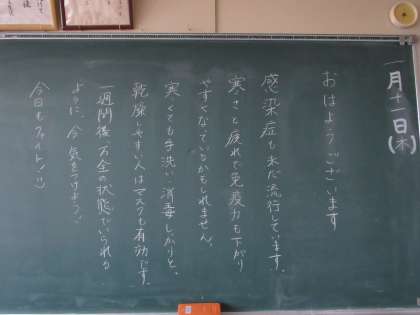 一月十一日(木)
おはようございます
感染症も未だ流行しています。
寒さと疲れで免疫力も下がり
やすくなっているかもしれません。
寒くても手洗い消毒しっかりと。
乾燥しやすい人はマスクも有効です。
一週間後、万全の状態でいられる
ように、今気をつけよう。
今日もファイト!!